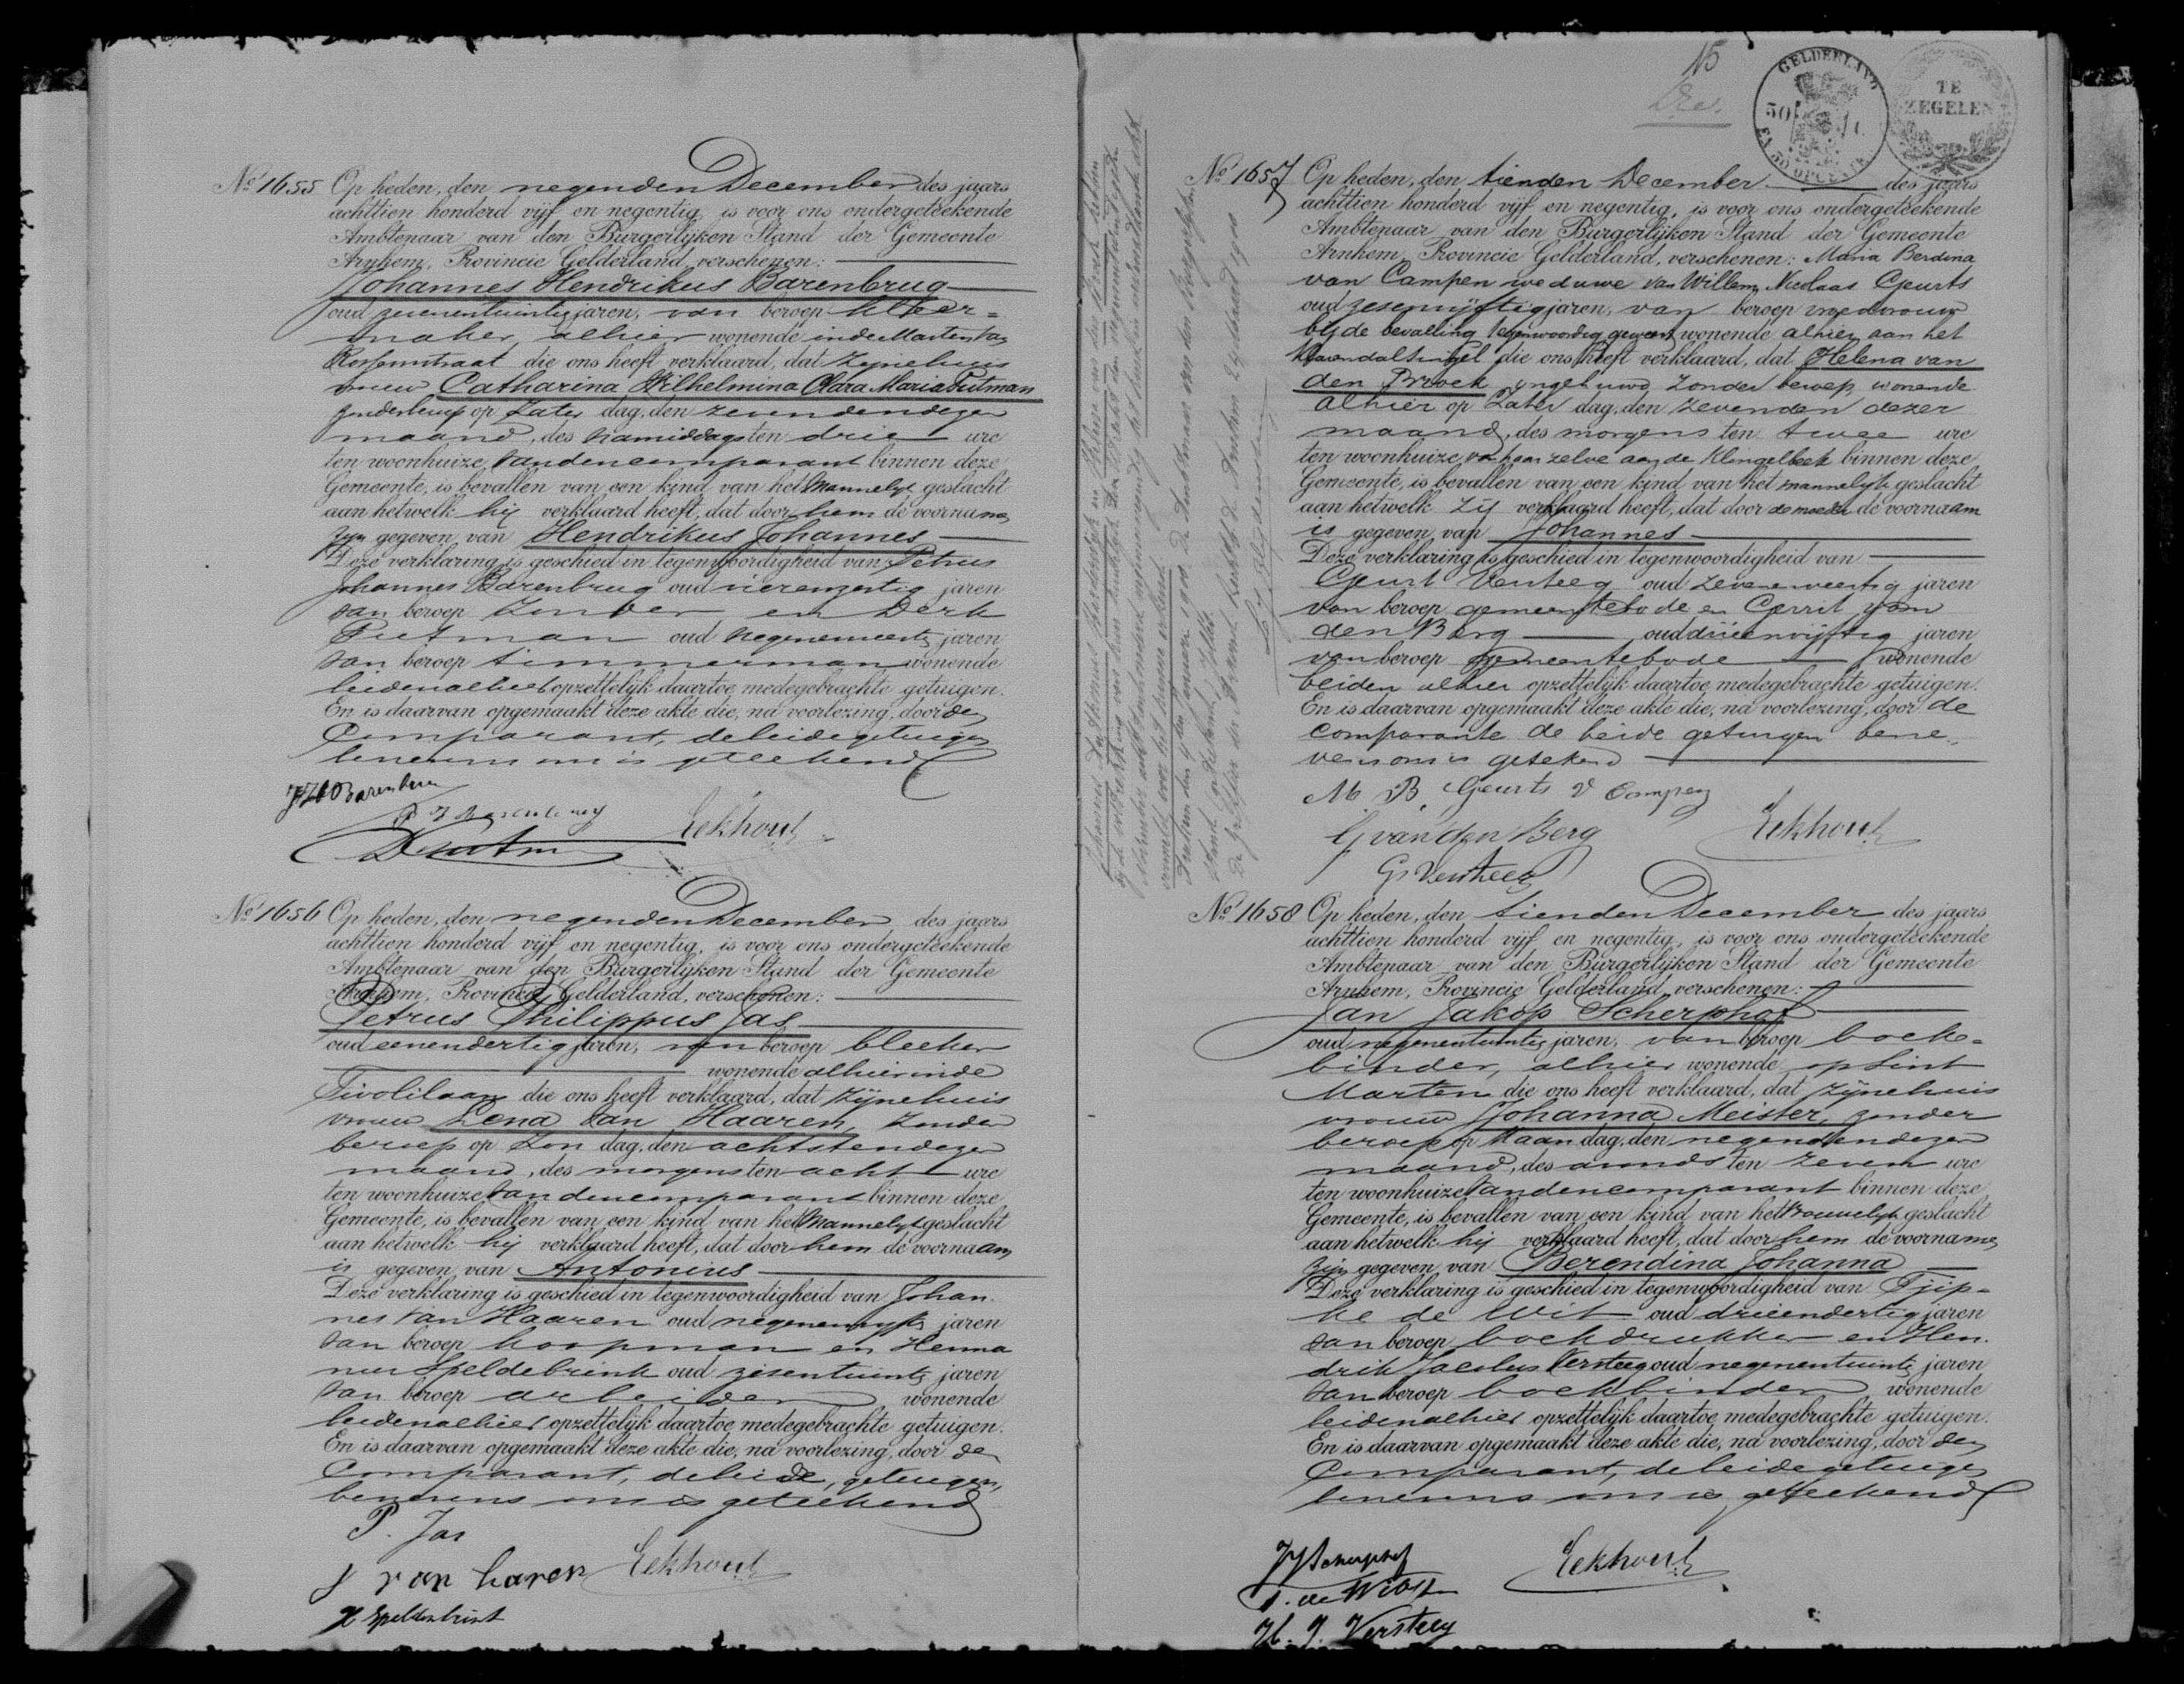 No. 1655 Op heden, den negenden December des jaars
achttien honderd vijf en negentig, is voor ons ondergeteekende
Ambtenaar van den Burgerlijken Stand der Gemeente
Arnhem, Provincie Gelderland, verschenen:
Johannes Hendrikus Barenbrug
oud zevenentwintig jaren, van beroep kleer-
maker, alhier wonende in de Marten van
Rossemstraat die ons heeft verklaard, dat zijne huis
vrouw Catharina Wilhelmina Clara Maria Putman
zonder beroep op Zater dag, den zevenden dezer
maand, des namiddags ten drie ure
ten woonhuize van den comparant binnen deze
Gemeente, is bevallen van een kind van het mannelijk geslacht
aan hetwelk hij verklaard heeft, dat door hem de voorname
zijn gegeven van Hendrikus Johannes
Deze verklaring is geschied in tegenwoordigheid van Petrus
Johannes Barenbrug oud vierenzestig jaren
van beroep en Derk
Putman oud jaren
van beroep timmerman wonende
beiden alhier opzettelijk daartoe medegebrachte getuigen.
En is daarvan opgemaakt deze akte die, na voorlezing, door de
Comparant, de beide getuigen
benevens ons is geteekend
JH Barenbrug
P J Barenbrug
Eekhout
No. 1656 Op heden, den negenden December des jaars
achttien honderd vijf en negentig, is voor ons ondergeteekende
Ambtenaar van den Burgerlijken Stand der Gemeente
Arnhem, Provincie Gelderland, verschenen:
Petrus Philippus Jas
oud eenendertig jaren, van beroep bleeker
wonende alhier in de
Tivolilaan die ons heeft verklaard, dat zijne huis
vrouw Lena van Haaren, zonder
beroep op Zon dag, den achtsten dezer
maand, des morgens ten acht ure
ten woonhuize van den comparant binnen deze
Gemeente, is bevallen van een kind van het mannelijk geslacht
aan hetwelk hij verklaard heeft, dat door hem de voornaam
is gegeven van Antonius
Deze verklaring is geschied in tegenwoordigheid van Johan
nes van Haaren oud negenenvijftig jaren
van beroep koopman en Herma
nus Speldebrink oud zesentwintig jaren
van beroep arbeider wonende
beiden alhier opzettelijk daartoe medegebrachte getuigen.
En is daarvan opgemaakt deze akte die, na voorlezing, door de
Comparant, de beide getuigen,
benevens ons is geteekend
P. Jas
J van haren Eekhout
H Speldenbrink
15
GELDERLAND
50
EN 50 OPCENTEN
TE
ZEGELEN
No. 1657 Op heden, den tienden December des jaars
achttien honderd vijf en negentig, is voor ons ondergeteekende
Ambtenaar van den Burgerlijken Stand der Gemeente
Arnhem, Provincie Gelderland, verschenen: Maria Berdina
van Campen weduwe van Willem Nicolaas Geurts
oud zesenvijftig jaren, van beroep vroedvrouw
bij de bevalling tegenwoordig geweest wonende alhier aan het
Klarendalsingel die ons heeft verklaard, dat Helena van
den Broek ongehuwd zonder beroep, wonende
alhier op Zater dag, den zevenden dezer
maand, des morgens ten twee ure
ten woonhuize van haar zelve aan de Klingelbeek binnen deze
Gemeente, is bevallen van een kind van het mannelijk geslacht
aan hetwelk zij verklaard heeft, dat door de moeder de voornaam
is gegeven van Johannes
Deze verklaring is geschied in tegenwoordigheid van
Geurt Versteeg oud jaren
van beroep gemeentebode en Gerrit van
den Berg oud drieenvijftig jaren
van beroep gemeentebode wonende
beiden alhier opzettelijk daartoe medegebrachte getuigen.
En is daarvan opgemaakt deze akte die, na voorlezing, door de
comparante de beide getuigen bene-
vens ons is geteekend
M B Geurts v Campen
G van den Berg Eekhout
G Versteeg
No. 1658 Op heden, den tienden December des jaars
achttien honderd vijf en negentig, is voor ons ondergeteekende
Ambtenaar van den Burgerlijken Stand der Gemeente
Arnhem, Provincie Gelderland, verschenen:
Jan Jakob Scherphof
oud negenentwintig jaren, van beroep boek-
binder, alhier wonende op Sint
Marten die ons heeft verklaard, dat zijne huis
vrouw Johanna Meister, zonder
beroep op Maan dag, den negenden dezer
maand, des avonds ten zeven ure
ten woonhuize van den comparant binnen deze
Gemeente, is bevallen van een kind van het vrouwelijk geslacht
aan hetwelk hij verklaard heeft, dat door hem de voorname
zijn gegeven van Berendina Johanna
Deze verklaring is geschied in tegenwoordigheid van Tjip-
ke de Wit oud drieendertig jaren
van beroep boekdrukker en Hen
drik Jacobus Versteeg oud negenentwintig jaren
van beroep boekbinder wonende
beiden alhier opzettelijk daartoe medegebrachte getuigen.
En is daarvan opgemaakt deze akte die, na voorlezing, door de
Comparant, de beide getuigen
benevens ons is geteekend
JJ Scherphof Eekhout
T. de Wit
H. J. Versteeg